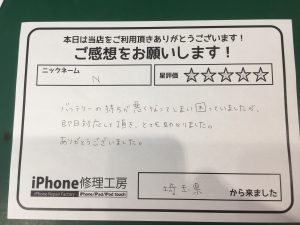 本日は当店をご利用頂きありがとうございます!
ご感想をお願いします!
ニックネーム
N
星評価 ☆☆☆☆☆
バッテリーの持ちが悪くなってしまい困っていましたが、
即日対応して頂き、とても助かりました。
ありがとうございました。
iPhone修理工房
iPhone Repair Factory
iPhone/iPad/iPod touch
埼玉県
から来ました